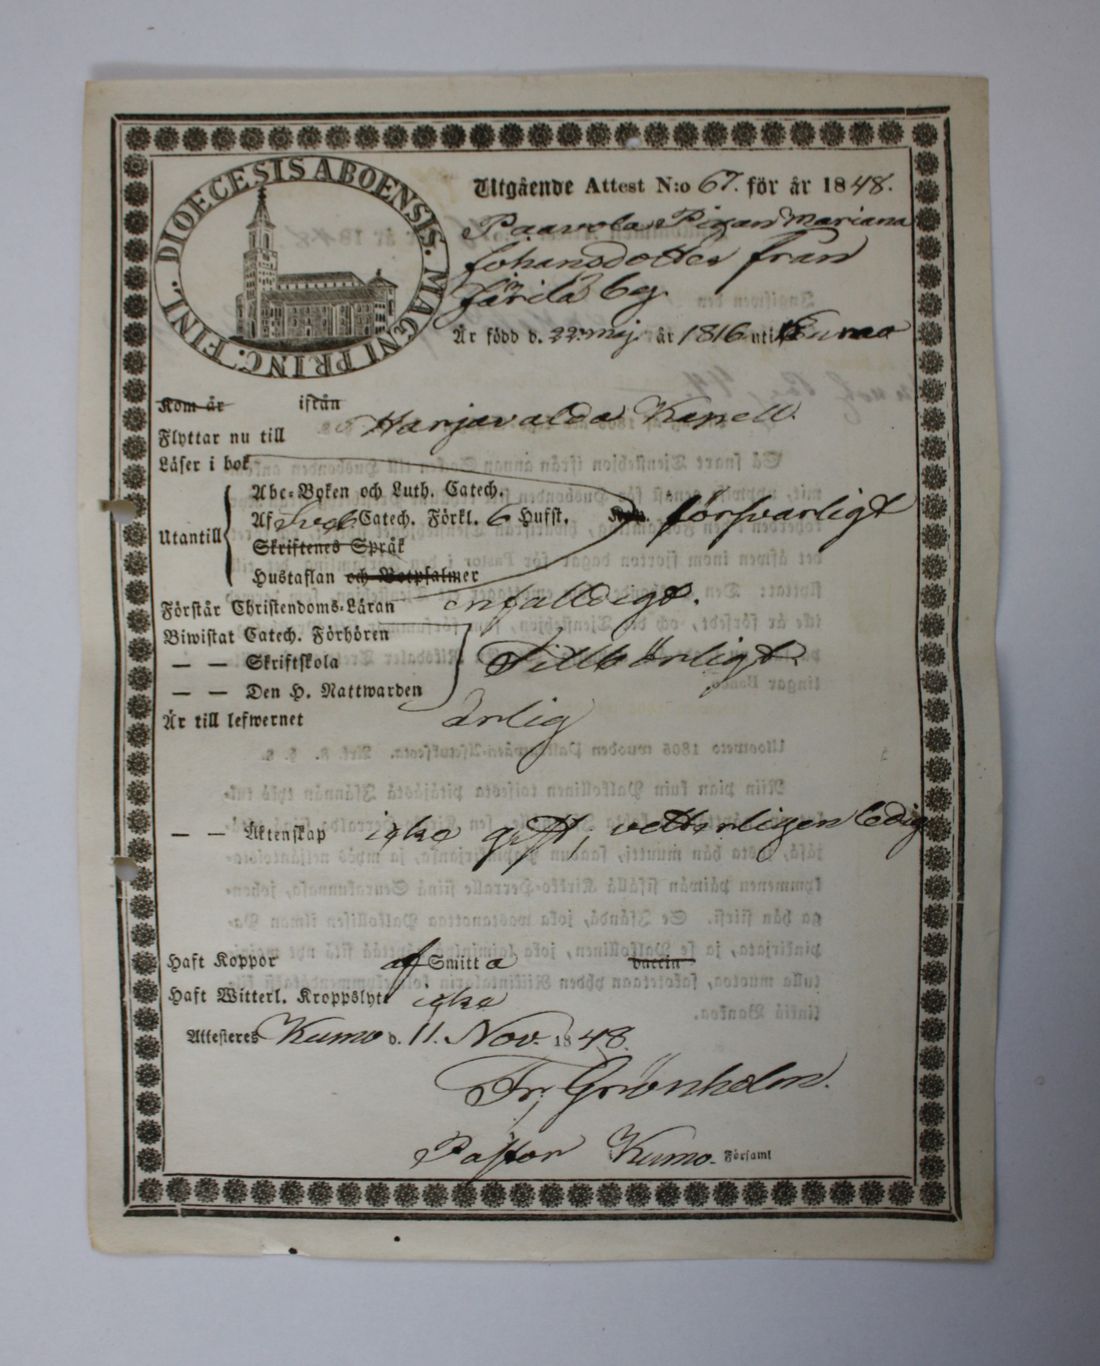 DIOECESIS ABOENSIS. MAGNI PRINC. FINL.
Utgående Attest N:o 67. för år 1848.
Paavola Pigan Mariana
Johansdotter från
Järilä by.
Är född d. 22 maj. år 1816 uti Kumo
Kom år ifrån
Flyttar nu till Harjavalda Kapell.
Läser i bok
Utantill
Abc-Boken och Luth. Catech.
Af Sveb Catech. Förkl. 6 Hufst. försvarligt
Skriftenes Språk
Hustaflan och Botpsalmer
Förstår Christendoms-Läran enfalldigt.
Biwistat Catech. Förhören
— — Skriftskola Tillbörligt
— — Den H. Nattwarden
Är till lefwernet ärlig
— — Äktenskap icke gift, vetterligen ledig
Haft Koppor af Smitta vaccin
Haft Witterl. Kroppslyte icke
Attesteres Kumo d. 11. Nov. 1848.
Fr. Grönholm.
Pastor Kumo. Församl